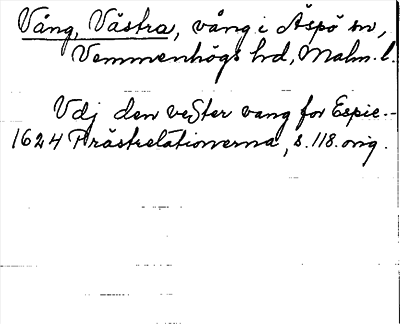 Vång, Västra, vång i Äspö sn,
Vemmenhögs hd, Malm. l.
Udj den vester vang for Espie.-
1624 Prästrelationerna, s. 118. orig.